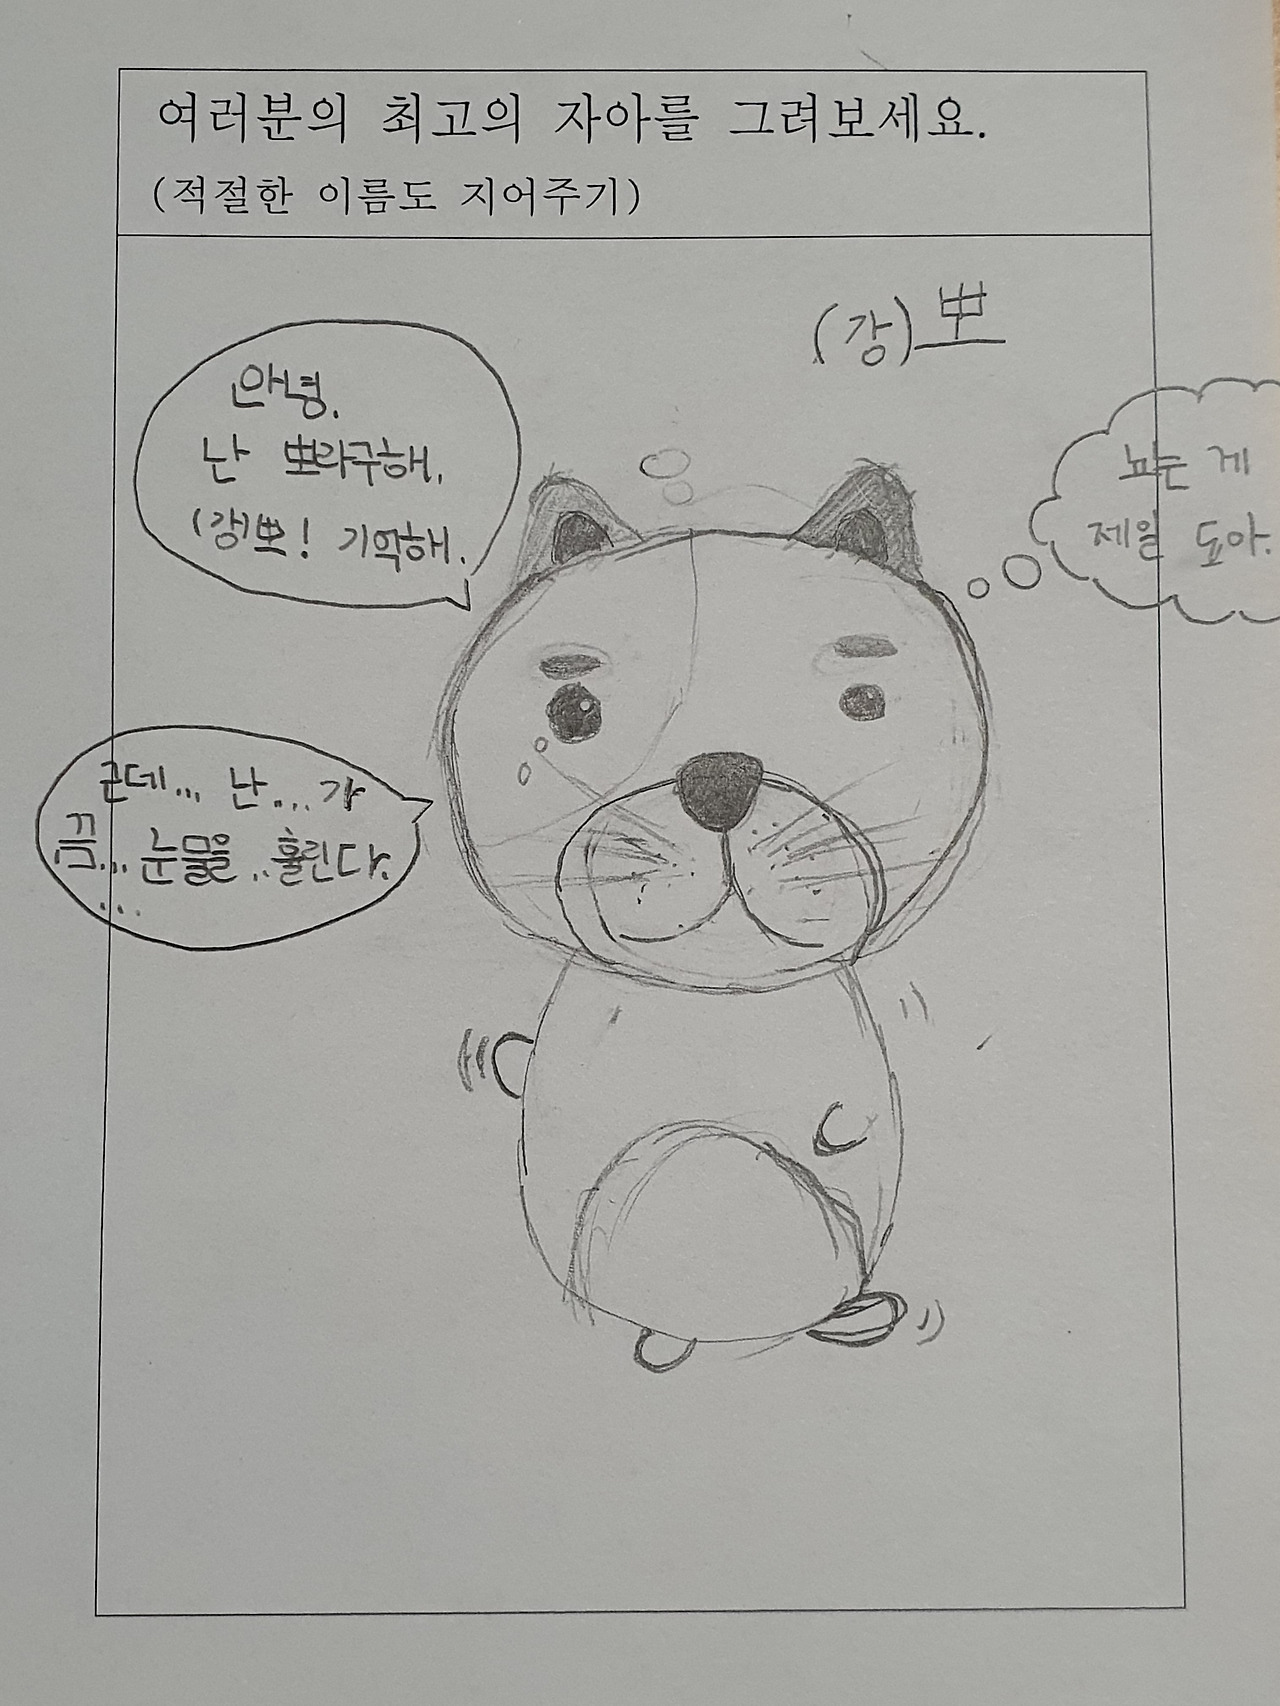 여러분의 최고의 자아를 그려보세요.
(적절한 이름도 지어주기)
(강)뽀
안녕.
난 뽀라구해.
(강)뽀! 기억해.
노는 게
제일 됴아.
근데... 난... 가
끔... 눈물을 ..흘린다.
...